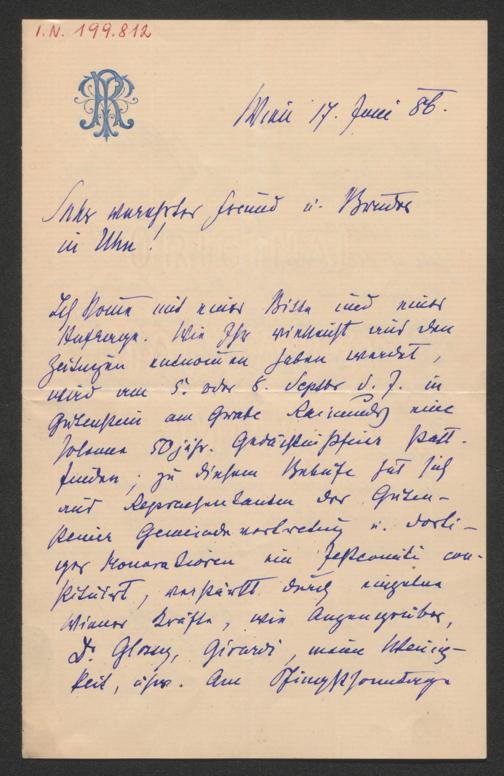 I.N. 199.812
Wien 17. Juni 86.
Sehr verehrter Freund u. Bruder
in Uhu!
Ich komme mit einer Bitte und einer
Anfrage. Wie Ihr vielleicht aus den
Zeitungen entnommen haben werdet,
wird am 5. oder 8. Septbr d. J. in
Gutenstein am Grabe Raimunds eine
solenne 50jähr. Gedächtnißfeier statt-
finden; zu diesem Behufe hat sich
aus Repraesentanten der Guten-
steiner Gemeindevertretung u. dorti-
ger Honoratioren ein Festcomité con-
stituirt, verstärkt durch einzelne
Wiener Kräfte, wie Anzengruber,
Dr. Glossy, Girardi, meine Wenig-
keit, usw. Am Pfingstsonntage